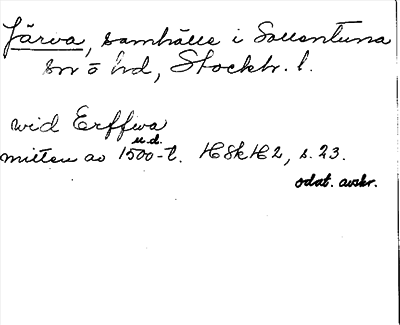 Järva, samhälle i Sollentuna
sn o hd, Stockh. l.
wid Erffwa
u.d.
mitten av 1500-t. HSkH2, s. 23.
odat. avskr.